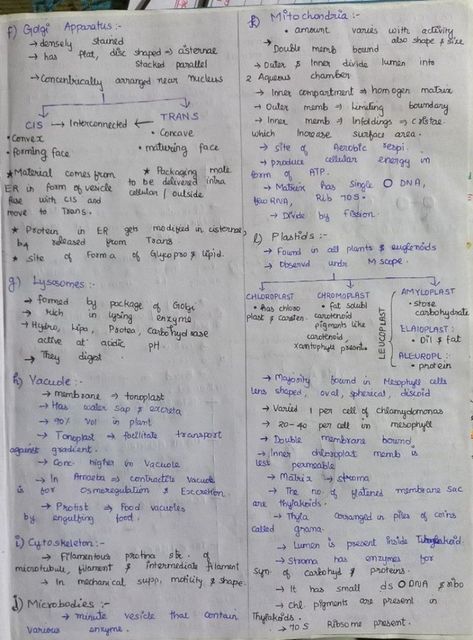 f) Golgi Apparatus :-
→ densely stained
→ has flat, disc shaped → cisternae
stacked parallel
→ Concentrically arranged near nucleus
CIS → Interconnected ← TRANS
• Convex
• Forming face
• Concave
• maturing face
* Material comes from
ER in form of vesicle
fuse with CIS and
move to Trans.
* Packaging mate
to be delivered intra
cellular / outside
* Protein in ER gets modified in cisternae,
by released from Trans
* Site of Forma of Glycopro & lipid.
g) Lysosomes :-
→ formed by package of Golgi
→ rich in lysing enzyme
→ Hydro, Lipa, Protea, Carbohydrase
active at acidic pH.
→ They digest
h) Vacuole :-
→ membrane → tonoplast
→ Has water sap & excreta
→ 90% vol in plant
→ Tonoplast → facilitate transport
against gradient.
→ Conc. higher in vacuole
→ In Amoeba → contractile vacuole
is for Osmoregulation & Excretion.
→ Protist → Food vacuoles
by engulfing food.
i) Cytoskeleton :-
→ Filamentous protina str. of
microtubule, filament & intermediate filament
→ In mechanical supp, motility & shape.
j) Microbodies :-
→ minute vesicle that contain
various enzyme.
k) Mitochondria :-
• amount varies with activity
also shape & size
→ Double memb bound
→ Outer & Inner divide lumen into
2 Aqueous chamber
→ Inner compartment → homogen matrix
→ Outer memb → Limiting boundary
→ Inner memb → Infoldings → cristae
which increase surface area.
→ site of Aerobic respi.
→ produce cellular energy in
form of ATP.
→ Matrix has single O DNA,
few RNA, Rib 70S.
→ Divide by fission.
l) Plastids :-
→ Found in all plants & euglenoids
→ Observed undr M scope.
CHLOROPLAST
• has chloro
plast & caroten.
CHROMOPLAST
• fat solubl
carotenoid
pigments like
carotenoid,
xantophylls present.
LEUCOPLAST
AMYLOPLAST
• store
carbohydrate
ELAIOPLAST :
• Oil & fat
ALEUROPL :
• protein
→ Majority bound in Mesophyll cells
lens shaped, oval, spherical, discoid
→ Varied 1 per cell of chlamydomonas
→ 20-40 per cell in mesophyll
→ Double membrane bound
→ Inner chloroplast memb is
less permeable
→ Matrix → stroma
→ The no. of flatened membrane sac
are thylakoids.
→ Thyla arranged in piles of coins
called grana.
→ Lumen is present inside Thylakoid
→ Stroma has enzymes for
Syn. of carbohyd & proteins.
→ It has small ds O DNA & ribo
→ chl. pigments are present in
Thylakoids.
→ 70 S Ribosome present.